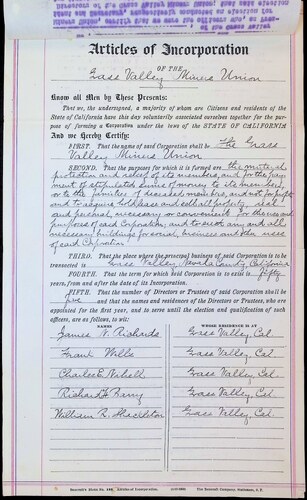 Articles of Incorporation
OF THE
Grass Valley Miners Union
Know all Men by These Presents:
That we, the undersigned, a majority of whom are Citizens and residents of the
State of California have this day voluntarily associated ourselves together for the pur-
pose of forming a Corporation under the laws of the STATE OF CALIFORNIA
And we Hereby Certify:
FIRST. That the name of said Corporation shall be The Grass
Valley Miners Union
SECOND. That the purposes for which it is formed are the mutual
protection and relief of its members, and for the pay-
ment of stipulated sums of money to its members,
or to the families of deceased members, and not for profit
and to acquire hold lease and sell all property, real
and personal, necessary or convenient for the uses and
purposes of said Corporation, and to erect any and all
necessary buildings for social, business and other uses
of said Corporation
THIRD. That the place where the principal business of said Corporation is to be
transacted is Grass Valley, Nevada County, California
FOURTH. That the term for which said Corporation is to exist is fifty
years, from and after the date of its Incorporation.
FIFTH. That the number of Directors or Trustees of said Corporation shall be
five and that the names and residences of the Directors or Trustees, who are
appointed for the first year, and to serve until the election and qualification of such
officers, are as follows, to wit:
NAMES WHOSE RESIDENCE IS AT
James N. Richards Grass Valley, Cal.
Frank Wills Grass Valley, Cal
Charles E. Grass Valley, Cal.
Richard F. Grass Valley, Cal.
William R. Shackleton Grass Valley, Cal.
Articles of Incorporation. The Bancroft Company, Stationers, S. F.